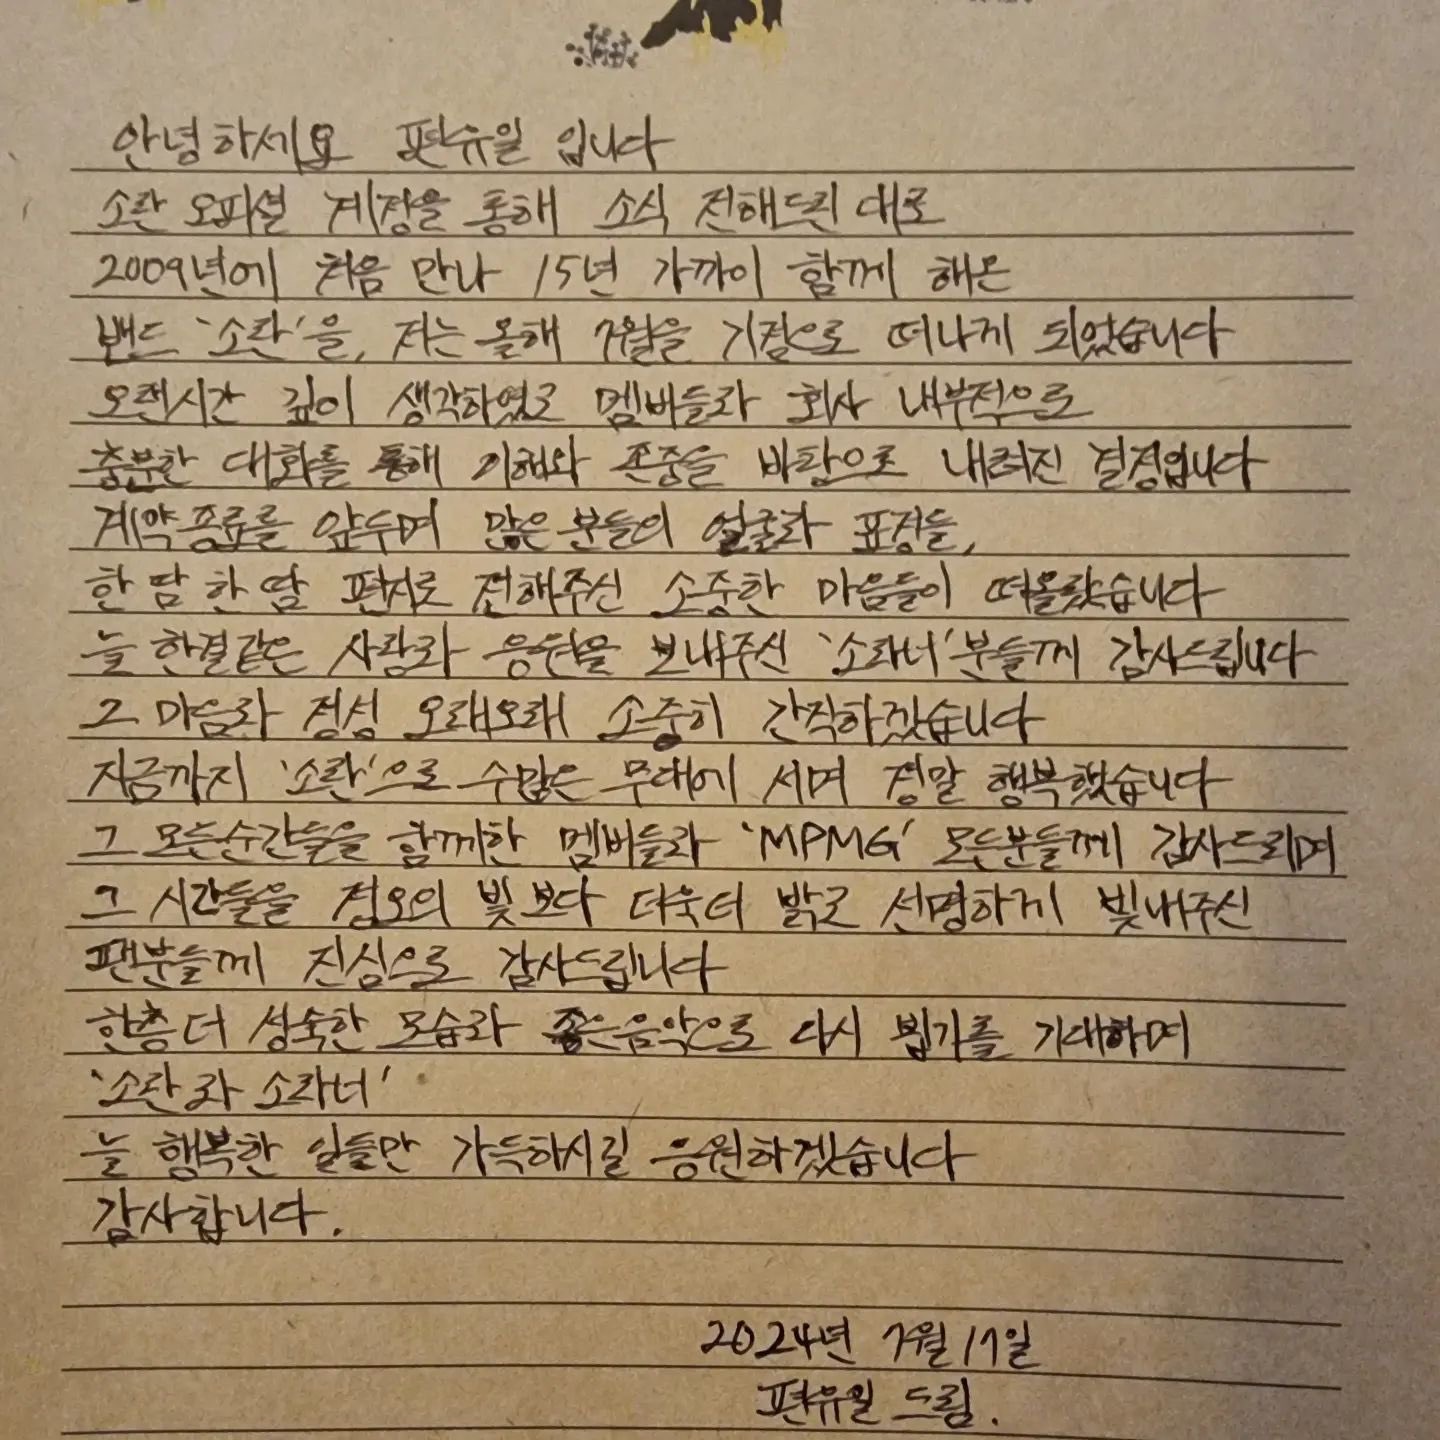 안녕하세요 편유일 입니다
소란 오피셜 계정을 통해 소식 전해드린 대로
2009년에 처음 만나 15년 가까이 함께 해온
밴드 '소란'을, 저는 올해 7월을 기점으로 떠나게 되었습니다
오랜시간 깊이 생각하였고 멤버들과 회사 내부적으로
충분한 대화를 통해 이해와 존중을 바탕으로 내려진 결정입니다
계약종료를 앞두며 많은분들의 얼굴과 표정들,
한 땀 한 땀 편지로 전해주신 소중한 마음들이 떠올랐습니다
늘 한결같은 사랑과 응원을 보내주신 '소라너'분들께 감사드립니다
그 마음과 정성 오래오래 소중히 간직하겠습니다
지금까지 '소란'으로 수많은 무대에 서며 정말 행복했습니다
그 모든순간들을 함께한 멤버들과 'MPMG' 모든분들께 감사드리며
그 시간들을 정오의 빛보다 더욱더 밝고 선명하게 빛내주신
팬분들께 진심으로 감사드립니다
한층 더 성숙한 모습과 좋은음악으로 다시 뵙기를 기대하며
'소란과 소라너'
늘 행복한 일들만 가득하시길 응원하겠습니다
감사합니다.
2024년 7월 17일
편유일 드림.